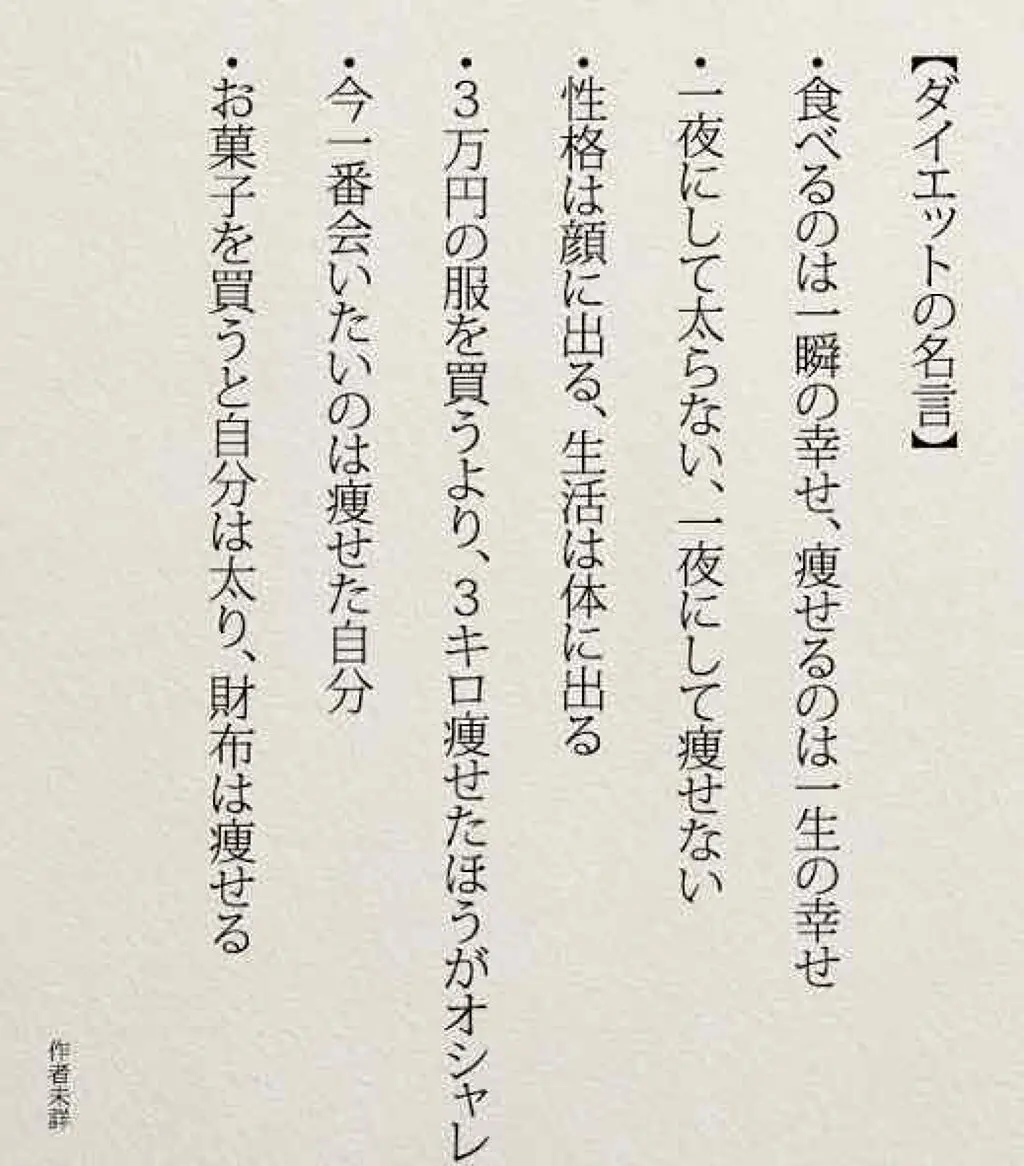 【ダイエットの名言】
・食べるのは一瞬の幸せ、痩せるのは一生の幸せ
・一夜にして太らない、一夜にして痩せない
・性格は顔に出る、生活は体に出る
・３万円の服を買うより、３キロ痩せたほうがオシャレ
・今一番会いたいのは痩せた自分
・お菓子を買うと自分は太り、財布は痩せる
作者未詳